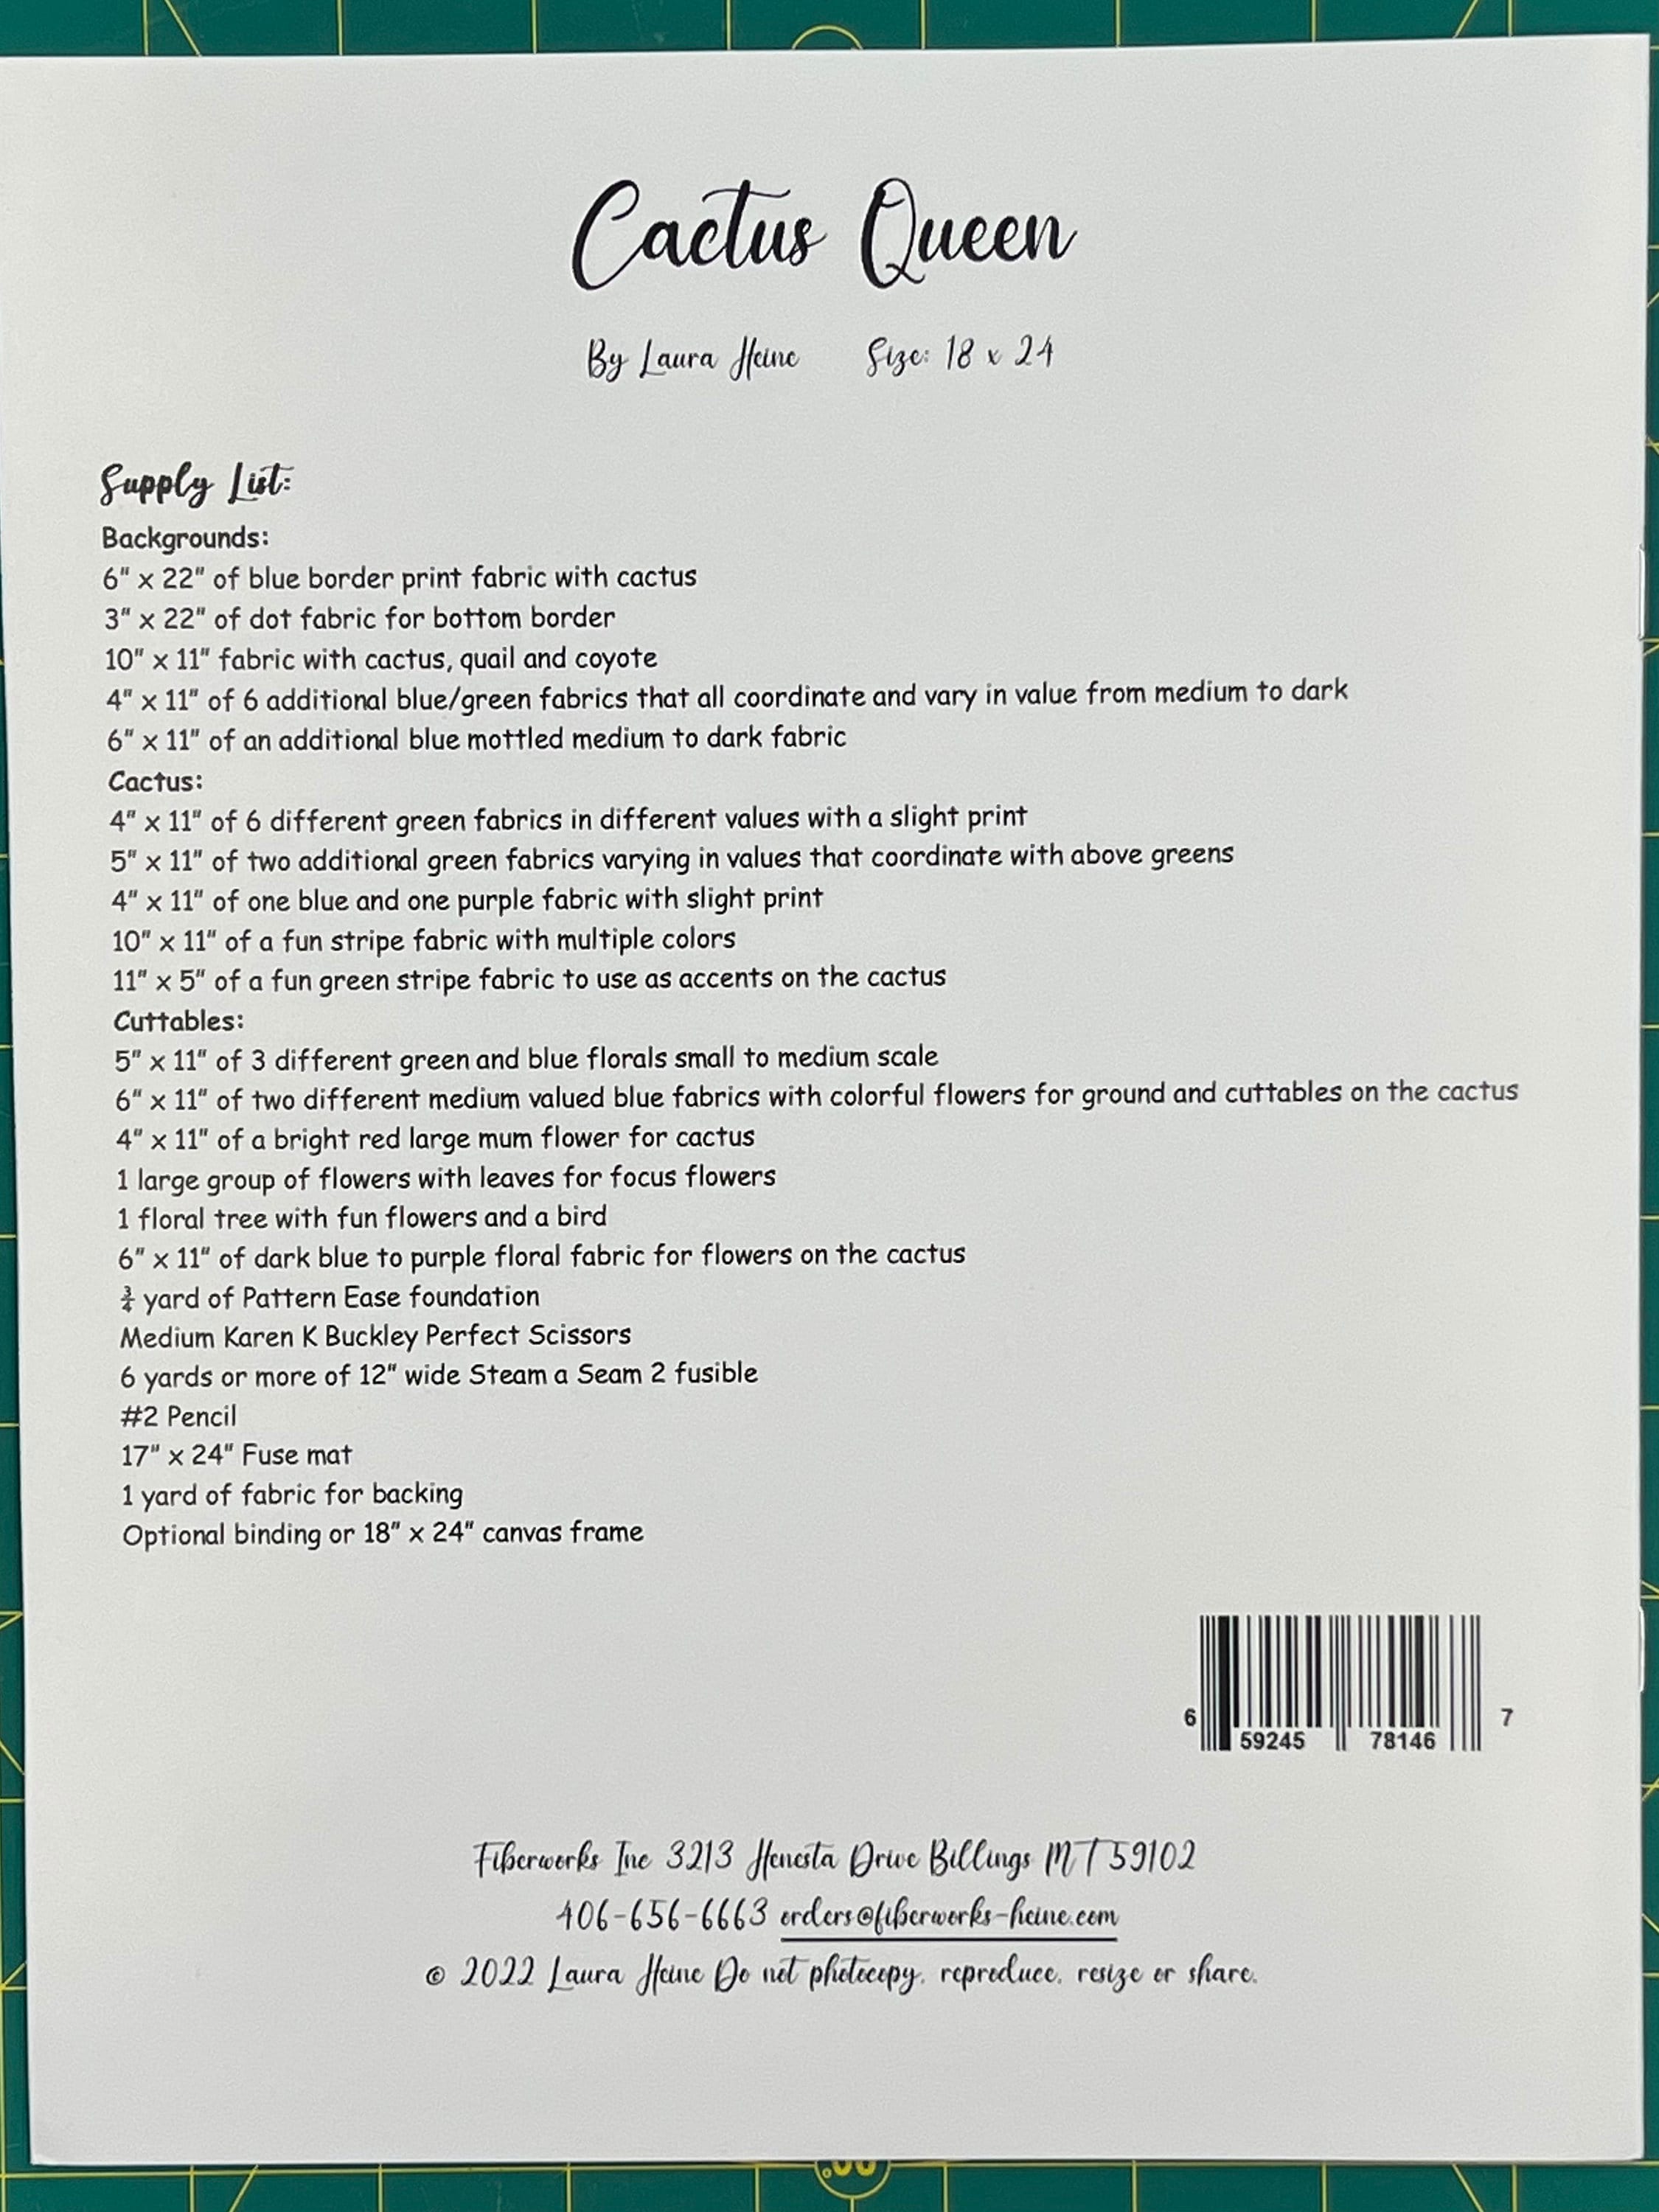 Cactus Queen
By Laura Heine Size: 18 x 24
Supply List:
Backgrounds:
6" x 22" of blue border print fabric with cactus
3" x 22" of dot fabric for bottom border
10" x 11" fabric with cactus, quail and coyote
4" x 11" of 6 additional blue/green fabrics that all coordinate and vary in value from medium to dark
6" x 11" of an additional blue mottled medium to dark fabric
Cactus:
4" x 11" of 6 different green fabrics in different values with a slight print
5" x 11" of two additional green fabrics varying in values that coordinate with above greens
4" x 11" of one blue and one purple fabric with slight print
10" x 11" of a fun stripe fabric with multiple colors
11" x 5" of a fun green stripe fabric to use as accents on the cactus
Cuttables:
5" x 11" of 3 different green and blue florals small to medium scale
6" x 11" of two different medium valued blue fabrics with colorful flowers for ground and cuttables on the cactus
4" x 11" of a bright red large mum flower for cactus
1 large group of flowers with leaves for focus flowers
1 floral tree with fun flowers and a bird
6" x 11" of dark blue to purple floral fabric for flowers on the cactus
¾ yard of Pattern Ease foundation
Medium Karen K Buckley Perfect Scissors
6 yards or more of 12" wide Steam a Seam 2 fusible
#2 Pencil
17" x 24" Fuse mat
1 yard of fabric for backing
Optional binding or 18" x 24" canvas frame
6 59245 78146 7
Fiberworks Inc 3213 Henesta Drive Billings MT 59102
406-656-6663 orders@fiberworks-heine.com
© 2022 Laura Heine Do not photocopy, reproduce, resize or share.